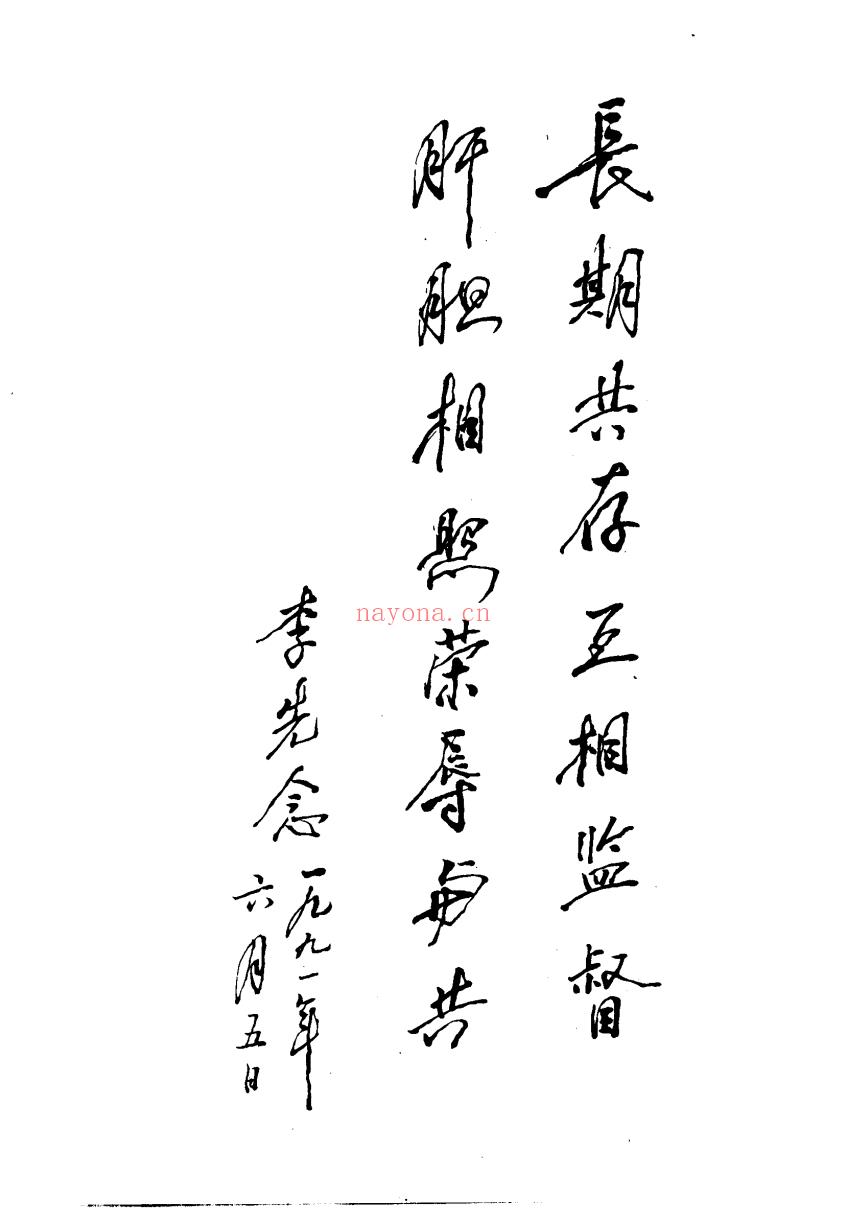 長期共存互相监督
肝胆相照荣辱与共
李先念
一九九一年
六月五日
nayona.cn